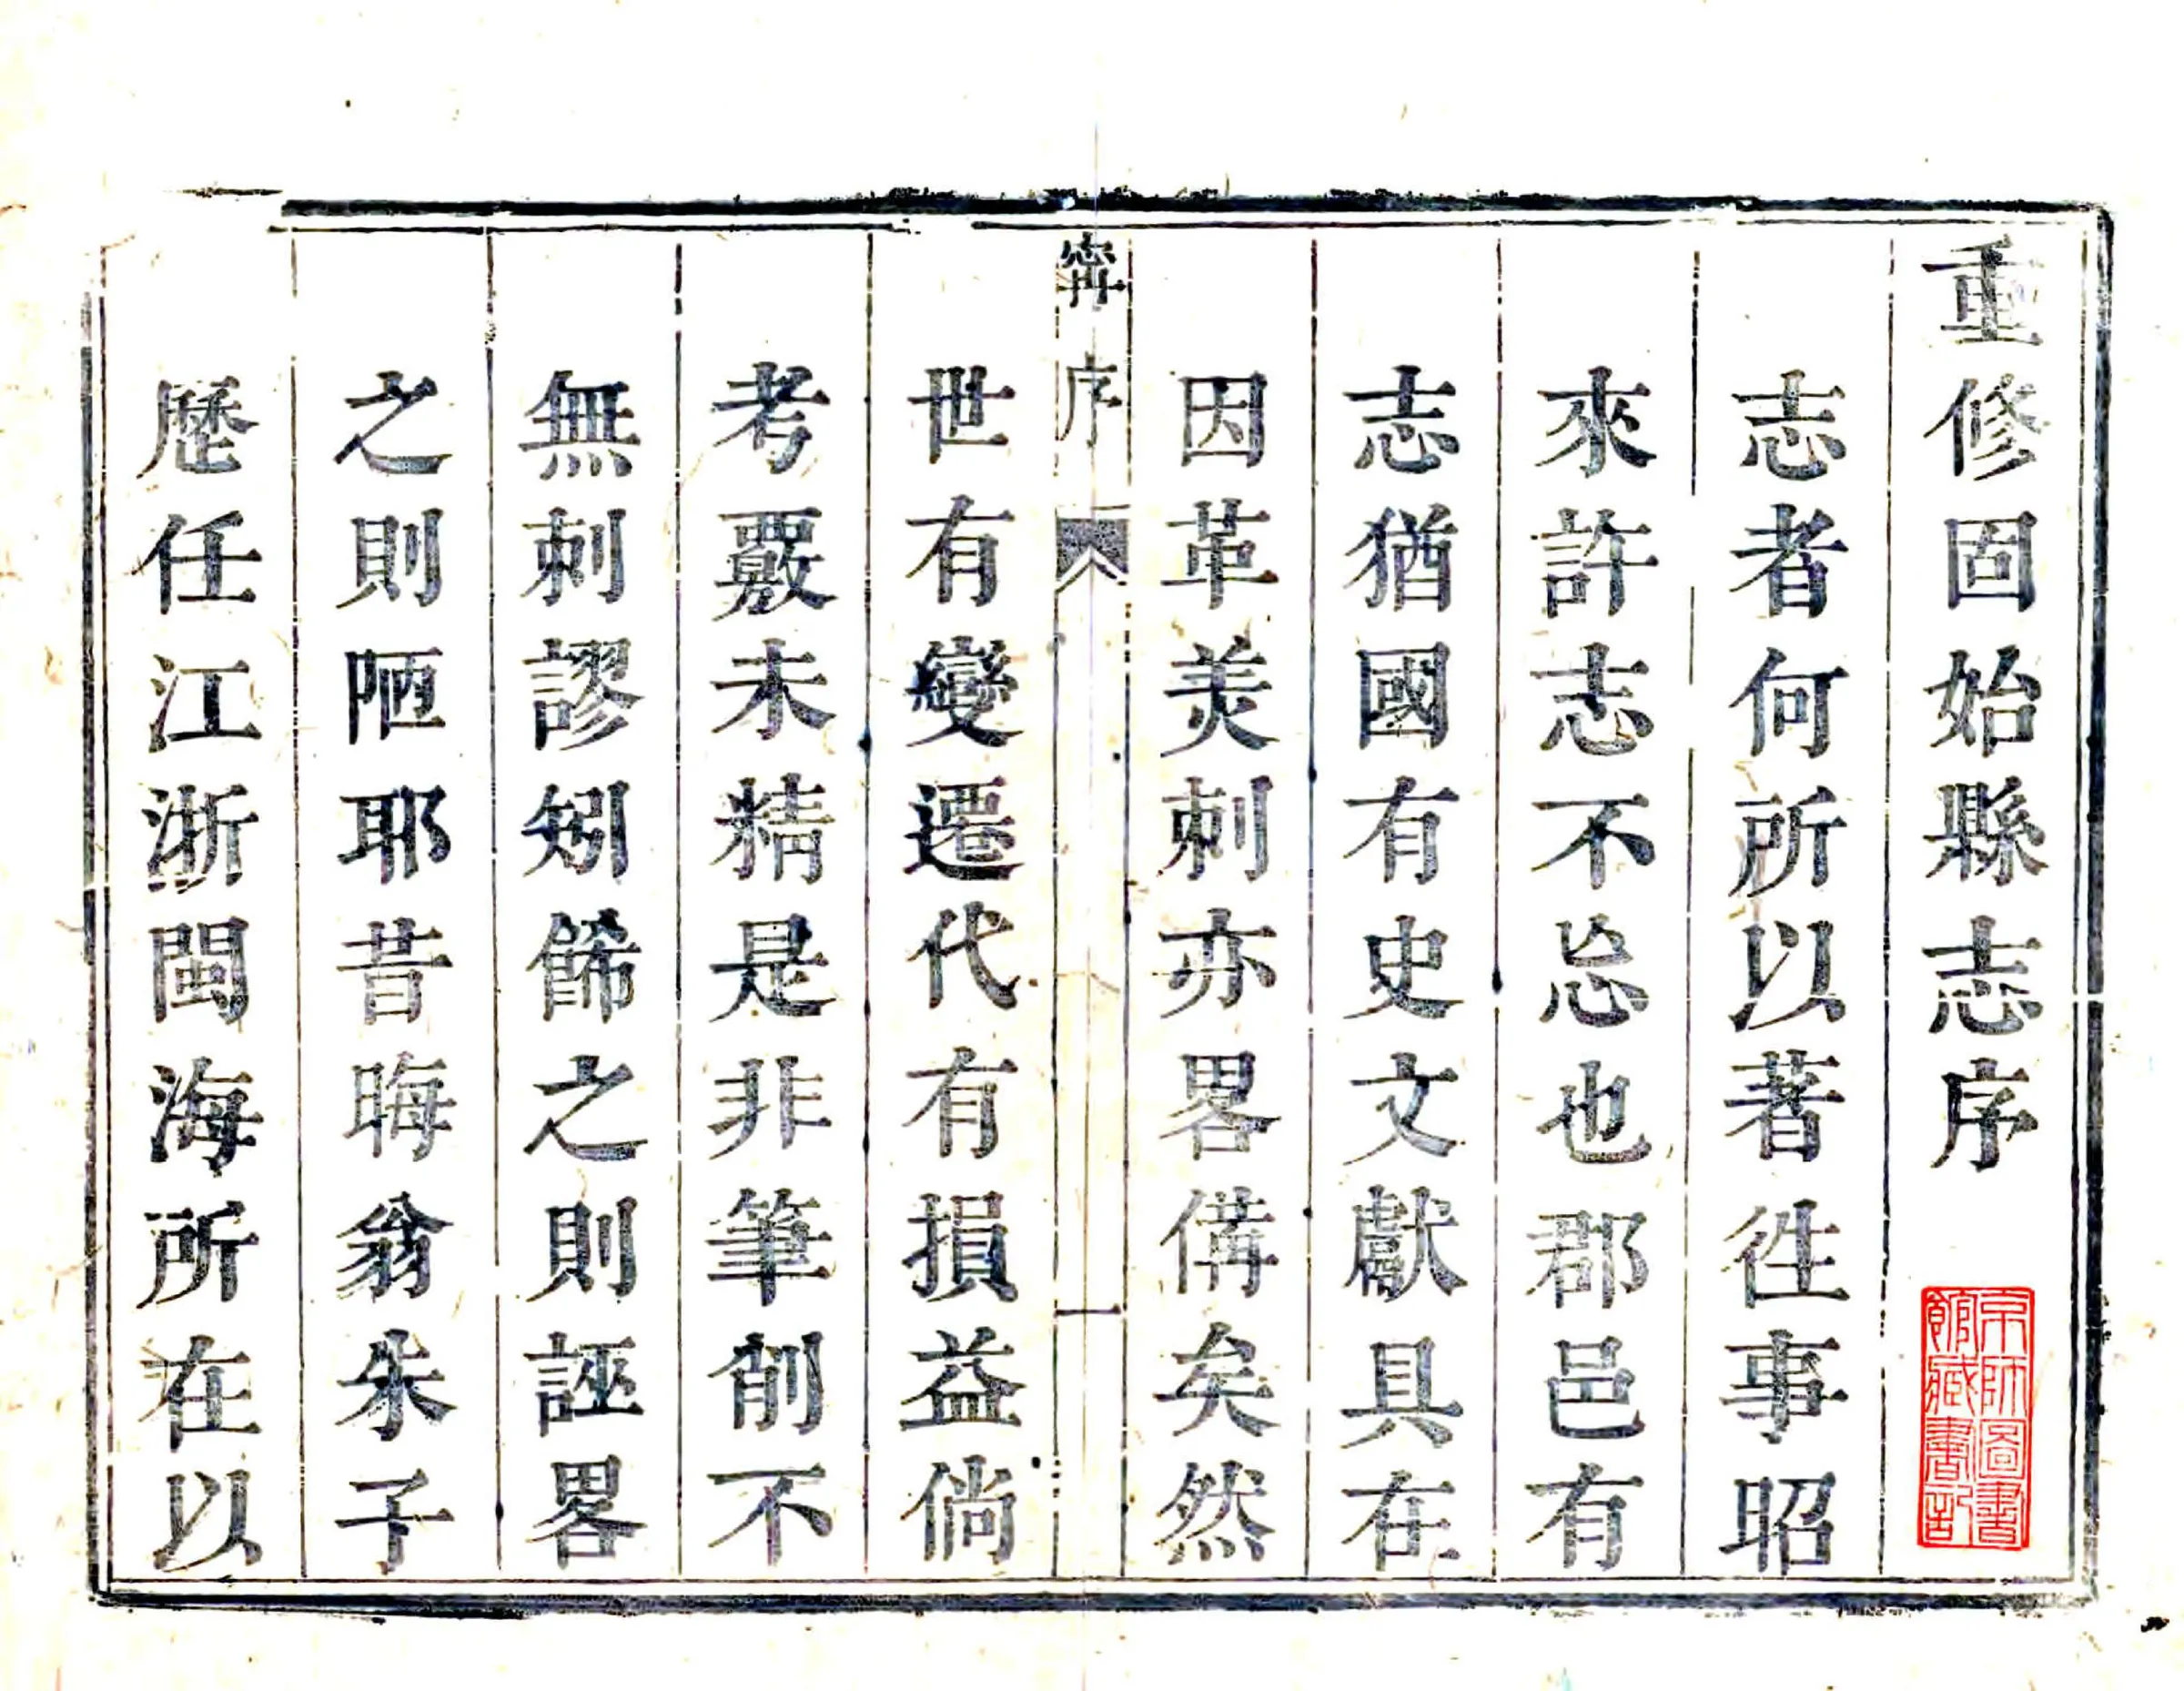 重修固始縣志序
京師圖書
館藏書記
志者何所以著徃事昭
來許志不忘也郡邑有
志猶國有史文獻具在
因革美刺亦畧備矣然
序
一
世有變遷代有損益倘
考覈未精是非筆削不
無刺謬矧餙之則誣畧
之則陋耶昔晦翁朱子
歷任江浙閩海所在以